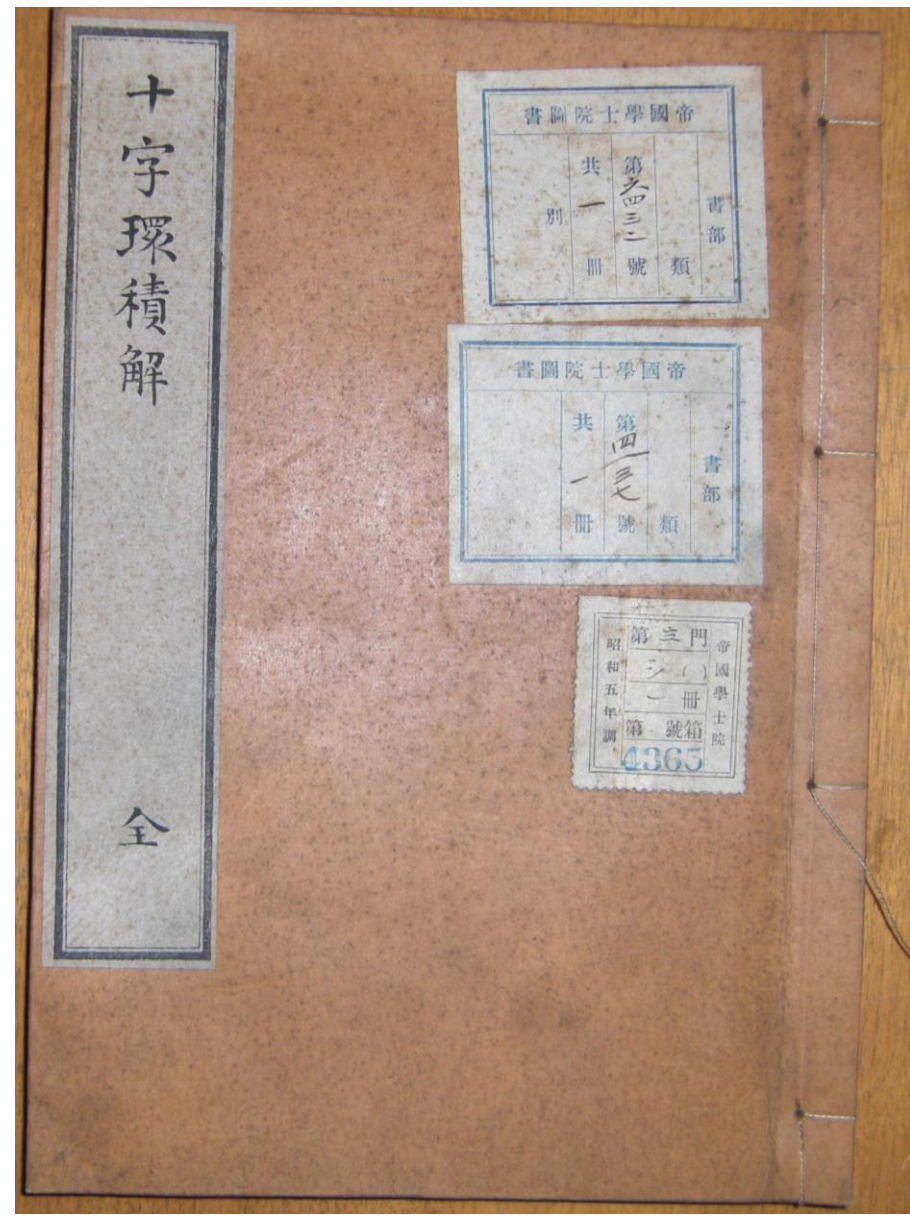 十字環積解
全
帝國學士院圖書
書部
類
第六四三二號
共一冊
別
帝國學士院圖書
書部
類
第四一三七號
共一冊
帝國學士院
第三門
シ( )
一冊
第 號箱
4365
昭和五年調